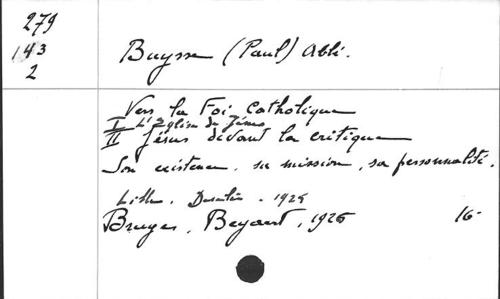 279
143
2
Buysse (Paul) Abbé.
Vers la Foi Catholique
I L'Eglise de Jésus
II Jésus devant la critique
Son existence, sa mission, sa personnalité.
Lille, Desclée. 1925
Bruges, Beyaert, 1926 16-